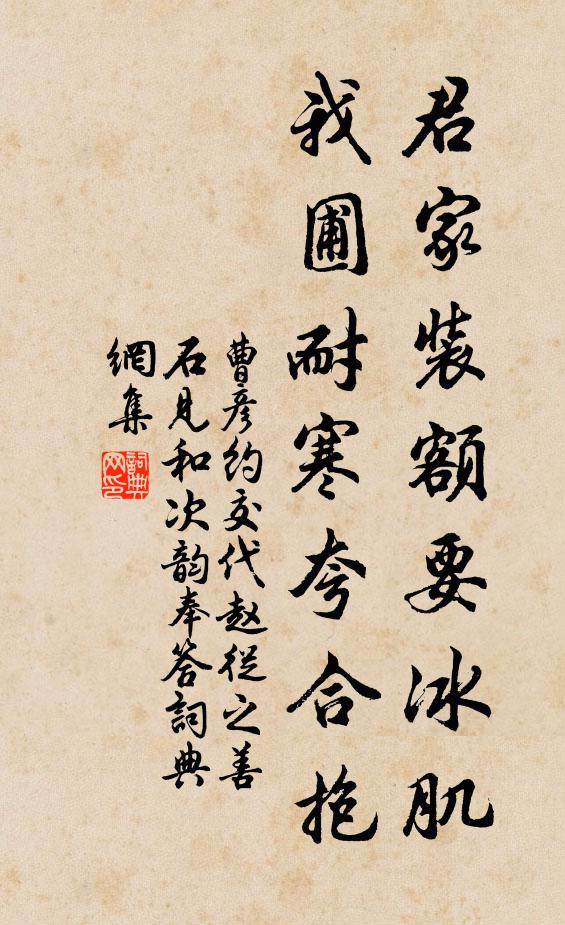 君家装額要冰肌
我圃耐寒夸合抱
曹彦約交代赵從之善
石見和次韵奉答詞典
網集
詞典
网印